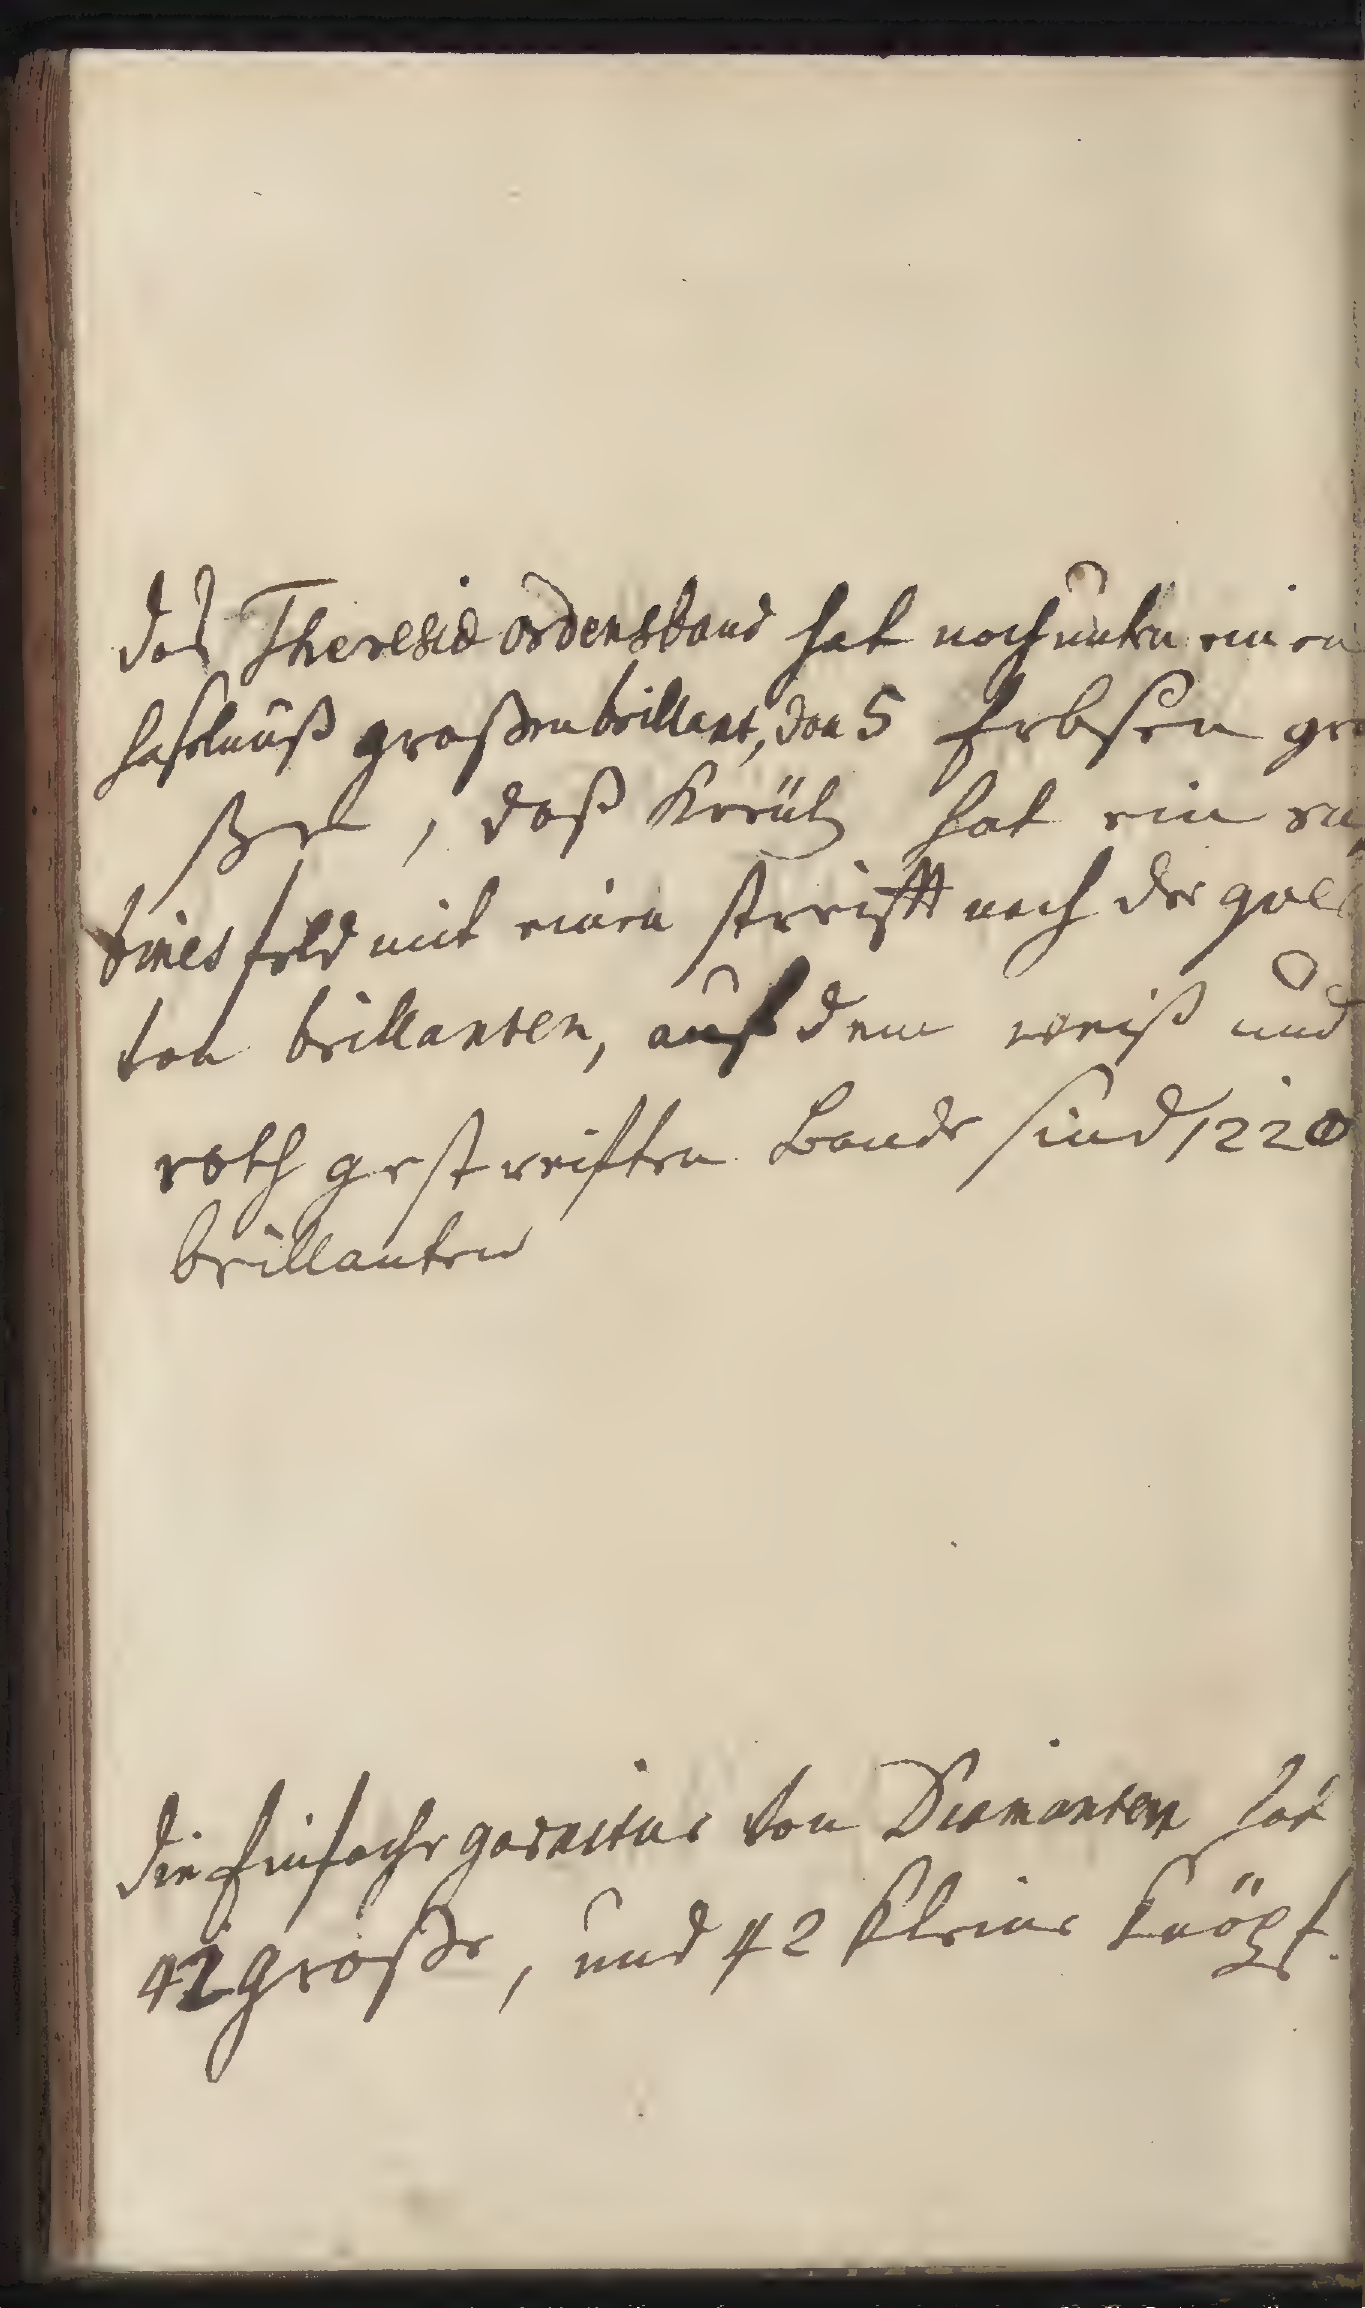 das Theresia ordensband hat noch unten einen
haselnuß großen brillant, von 5 Erbsen gro
ßen, daß Kreütz hat ein ru
bines feld mit einen streifft nach der que
von brillanten, auf dem weiß und
roth gestreiften Bande sind 1220
brillanten
die Einfache garnitur von Diamanten hat
42 große, und 42 kleine Knöpf.